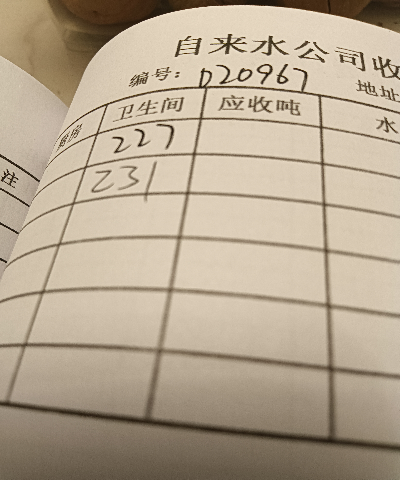 自来水公司收
编号: D20967 地址
厨房 卫生间 应收吨 水
227
231
注